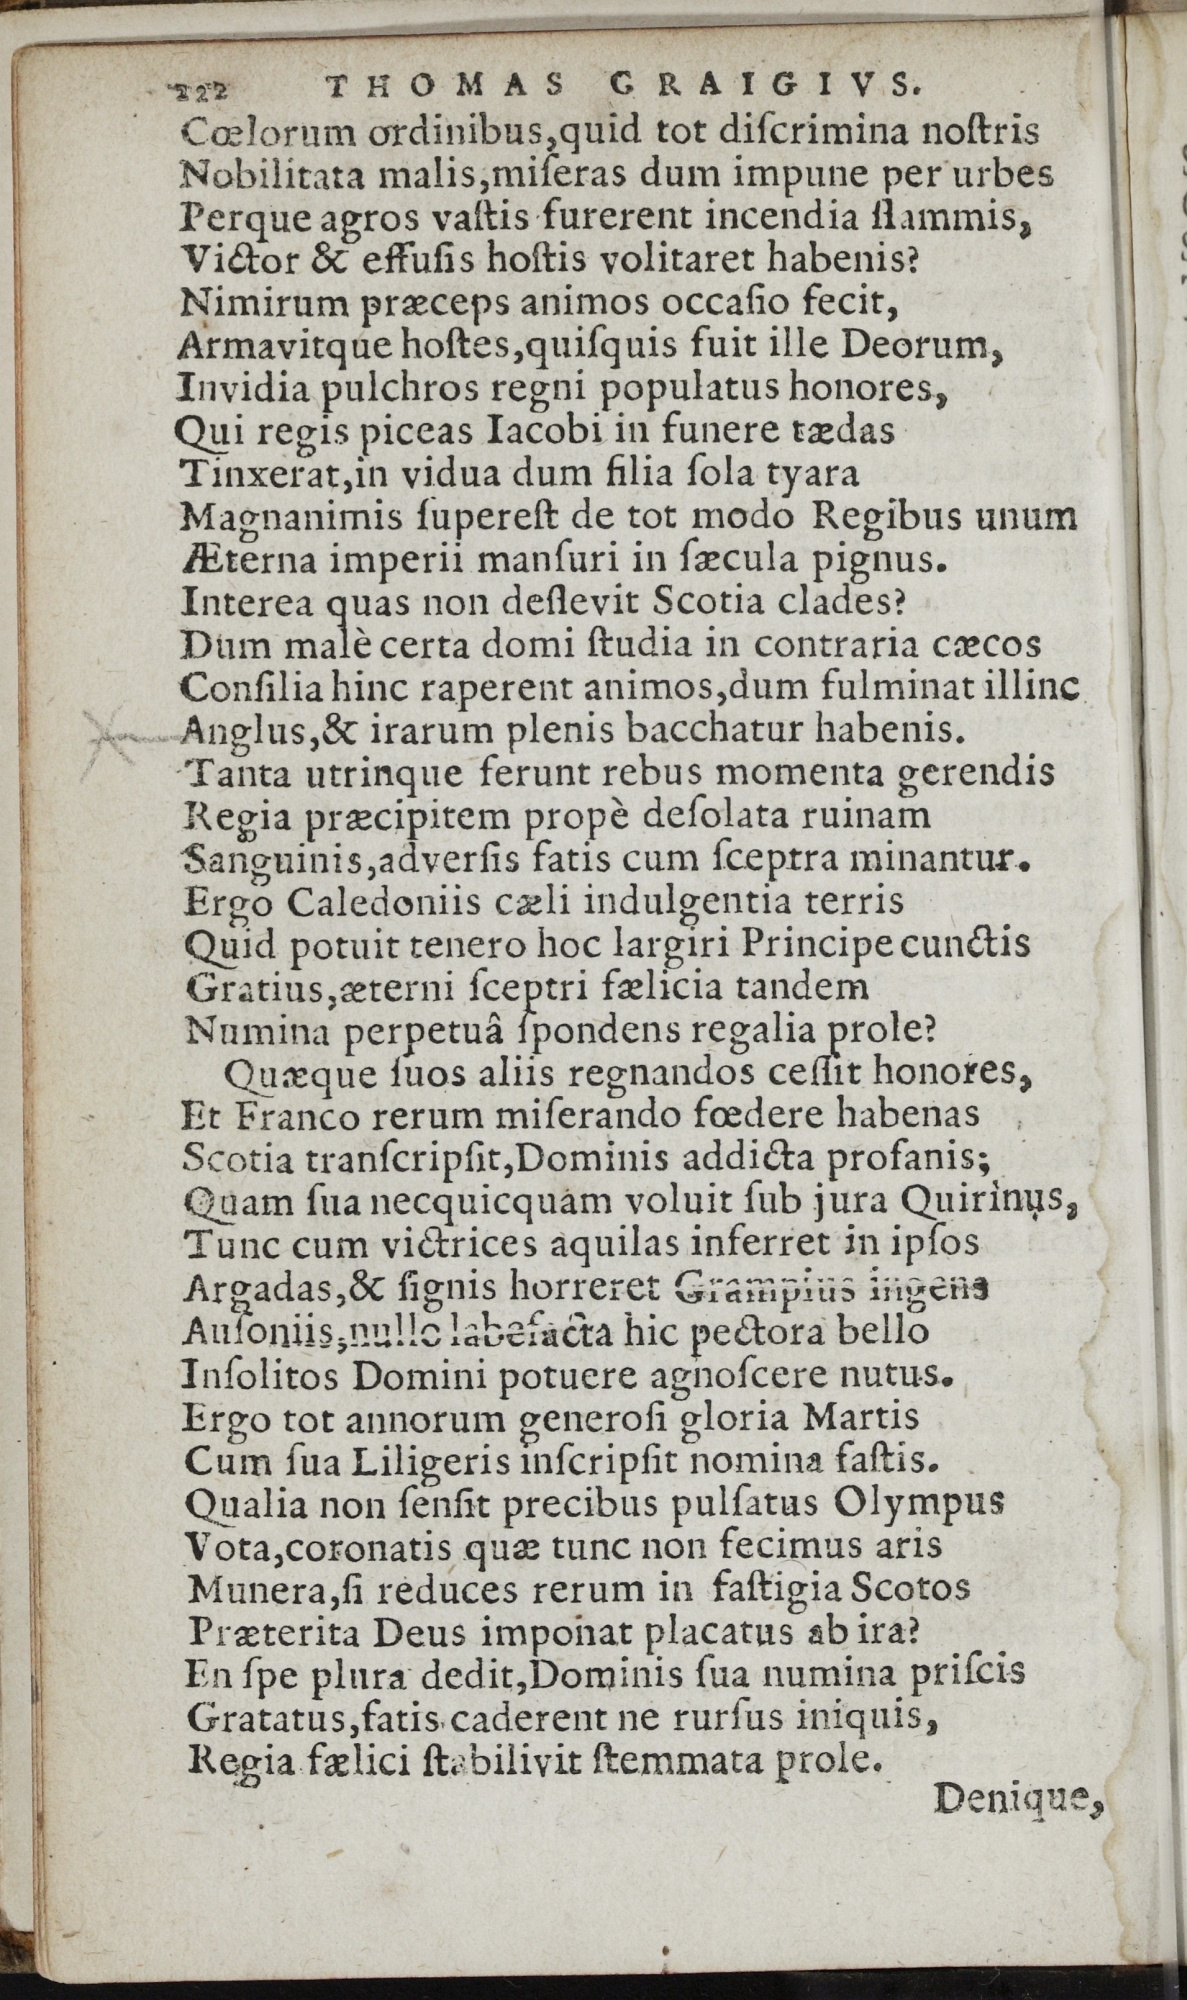 222 THOMAS GRAIGIVS.
Cœlorum ordinibus,quid tot diſcrimina noſtris
Nobilitata malis,miſeras dum impune per urbes
Perque agros vaſtis furerent incendia flammis,
Victor & effuſis hoſtis volitaret habenis?
Nimirum præceps animos occaſio fecit,
Armavitque hoſtes,quiſquis fuit ille Deorum,
Invidia pulchros regni populatus honores,
Qui regis piceas Iacobi in funere tædas
Tinxerat,in vidua dum filia ſola tyara
Magnanimis ſupereſt de tot modo Regibus unum
Æterna imperii manſuri in ſæcula pignus.
Interea quas non deflevit Scotia clades?
Dum malè certa domi ſtudia in contraria cæcos
Conſilia hinc raperent animos,dum fulminat illinc
Anglus,& irarum plenis bacchatur habenis.
Tanta utrinque ferunt rebus momenta gerendis
Regia præcipitem propè deſolata ruinam
Sanguinis,adverſis fatis cum ſceptra minantur.
Ergo Caledoniis cæli indulgentia terris
Quid potuit tenero hoc largiri Principe cunctis
Gratius,æterni ſceptri fælicia tandem
Numina perpetuâ ſpondens regalia prole?
Quæque ſuos aliis regnandos ceſſit honores,
Et Franco rerum miſerando fœdere habenas
Scotia tranſcripſit,Dominis addicta profanis;
Quam ſua necquicquam voluit ſub jura Quirinus,
Tunc cum victrices aquilas inferret in ipſos
Argadas,& ſignis horreret Grampius ingens
Auſoniis,nullo labefacta hic pectora bello
Inſolitos Domini potuere agnoſcere nutus.
Ergo tot annorum generoſi gloria Martis
Cum ſua Liligeris inſcripſit nomina faſtis.
Qualia non ſenſit precibus pulſatus Olympus
Vota,coronatis quæ tunc non fecimus aris
Munera,ſi reduces rerum in faſtigia Scotos
Præterita Deus imponat placatus ab ira?
En ſpe plura dedit,Dominis ſua numina priſcis
Gratatus,fatis caderent ne rurſus iniquis,
Regia fælici ſtabilivit ſtemmata prole.
Denique,